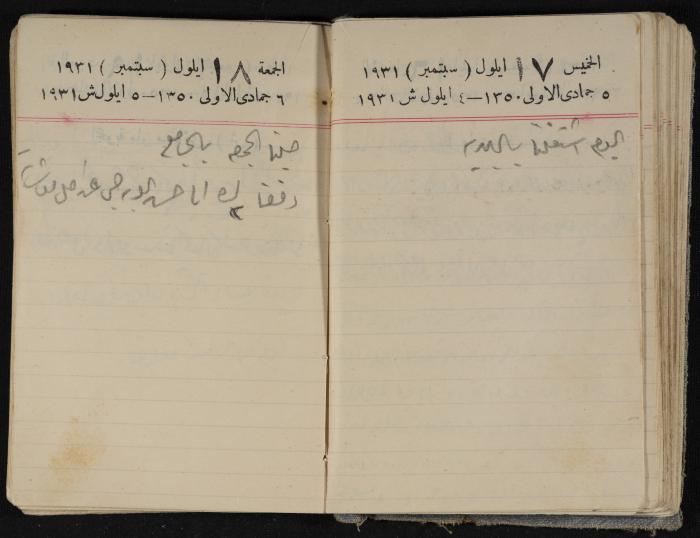 الخميس ١٧ ايلول ( سبتمبر ) ١٩٣١
٥ جمادى الاولى ١٣٥٠ — ٤ ايلول ش ١٩٣١
اليوم اشتغلنا بالبلديه
الجمعة ١٨ ايلول ( سبتمبر ) ١٩٣١
٦ جمادى الاولى ١٣٥٠ — ٥ ايلول ش ١٩٣١
صلينا الجمعه بالجامع
دفعنا ٢ ليره الى حسن